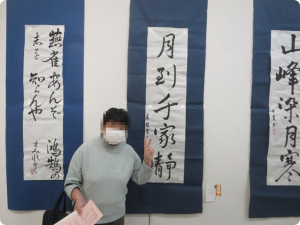 山峰月寒
月到千家静
燕雀あんぞ鴻鵠の
志を知らんや